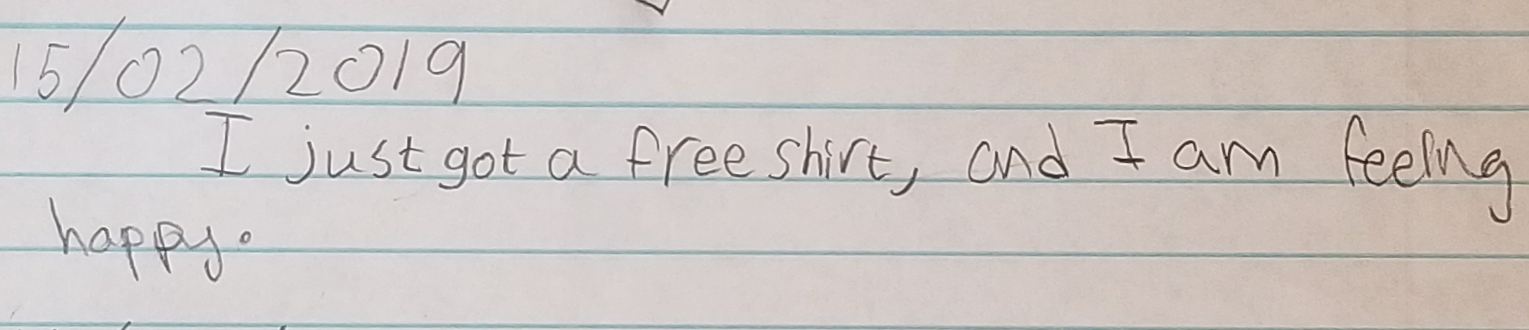 15/02/2019
I just got a free shirt, and I am feelng
happy.